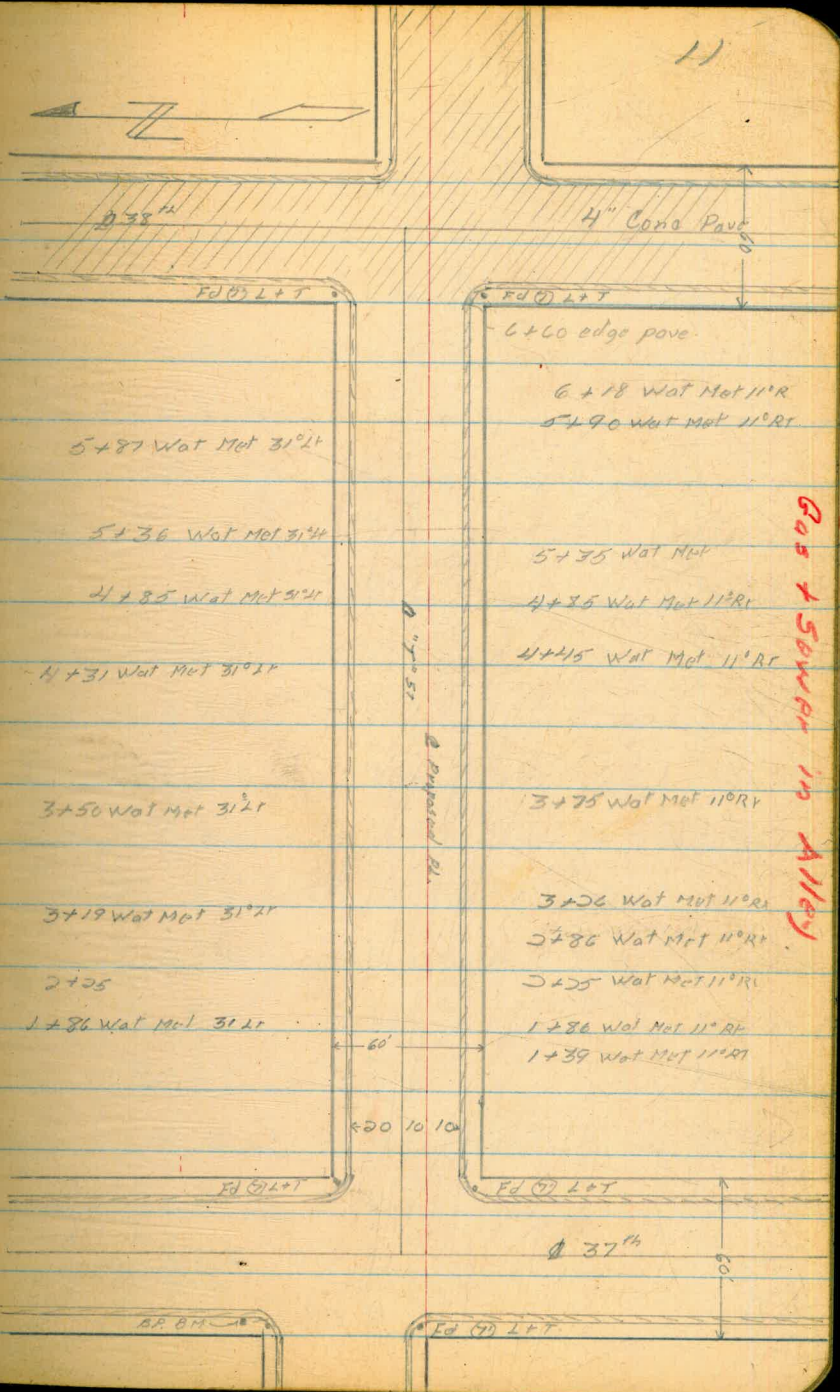 11
38th
4" Conc Pave
60
Fd L+T
Fd L+T
6+60 edge pave.
6+18 Wat Met 11°R
5+90 Wat Met 11°Rt
5+87 Wat Met 31°Lt
5+36 Wat Met 31°Lt
5+35 Wat Met
4+85 Wat Met 31°Lt
4+85 Wat Met 11°Rt
4+45 Wat Met 11°Rt
4+31 Wat Met 31°Lt
"T" St
Proposed PL.
Gas + Sewer in Alley
3+50 Wat Met 31°Lt
3+75 Wat Met 11°Rt
3+26 Wat Met 11°Rt
3+19 Wat Met 31°Lt
2+86 Wat Met 11°Rt
2+25
2+25 Wat Met 11°Rt
1+86 Wat Met 31 Lt
1+86 Wat Met 11°Rt
1+39 Wat Met 11°Rt
60'
20 10 10
Fd L+T
Fd L+T
37th
60'
BP. BM
Fd L+T